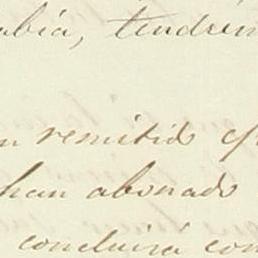 abía, tendrém
n remitido q
han abonado
concluirá con